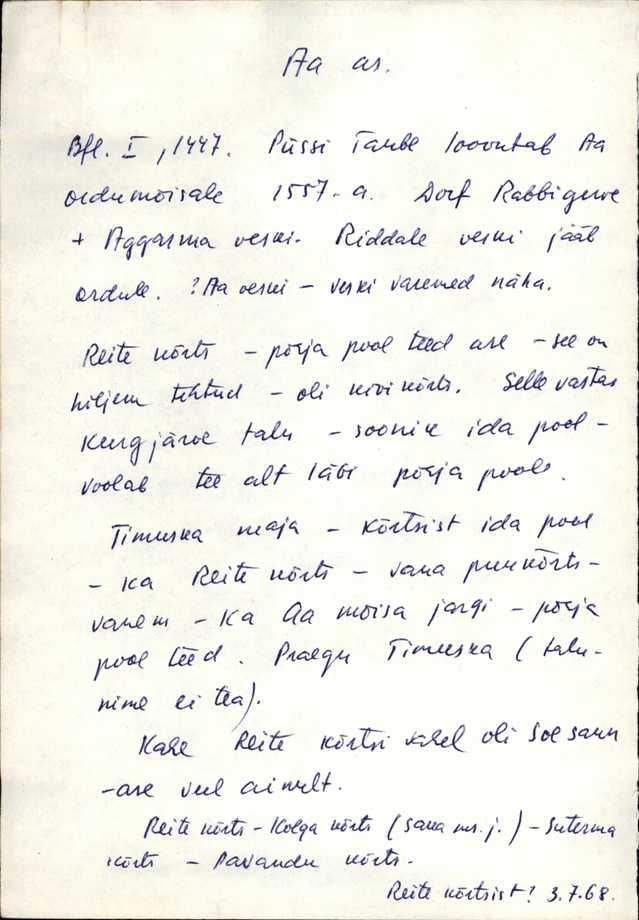 Aa as.
Bfl. I, 1447. Püssi Taube loovutab Aa
ordumõisale 1557. a. Dorf Rabbigerwe
+ Aggasma veski. Riddale veski jääb
ordule. ? Aa veski – veski varemed näha.
Reite kõrts – põhja pool teed ase – see on
hiljem tehtud – oli kivikõrts. Selle vastas
Kurgjärve talu – soonik ida pool –
voolab tee alt läbi põhja poole.
Timuska maja – Kõrtsist ida pool
– ka Reite kõrts – vana puukõrts –
vanem – Ka Aa mõisa järgi – põhja
pool teed. Praegu Timuska (talu-
nime ei tea).
Kahe Reite kõrtsi vahel oli Soe saun
– ase veel ainult.
Reite kõrts – Kolga kõrts (Saka ms. j.) – Suterma
kõrts – Pavandu kõrts.
Reite kõrtsist! 3.7.68.